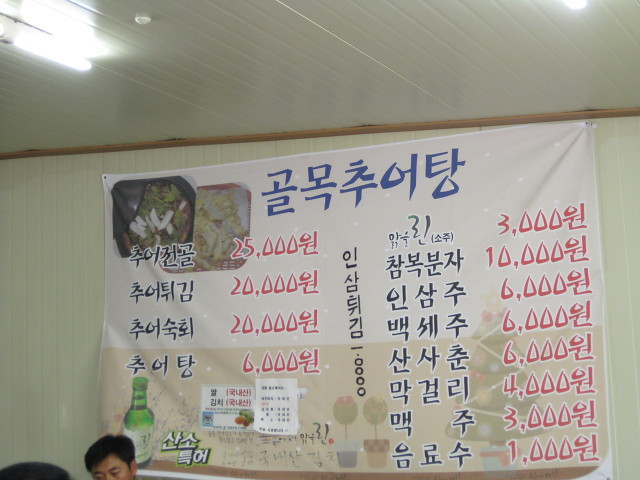 골목추어탕
추어전골 25,000원
추어튀김 20,000원
추어숙회 20,000원
추어탕 6,000원
인삼튀김 1.000
맑을린 (소주) 3,000원
참복분자 10,000원
인삼주 6,000원
백세주 6,000원
산사춘 6,000원
막걸리 4,000원
맥주 3,000원
음료수 1,000원
쌀 (국내산)
김치 (국내산)
산소
특허